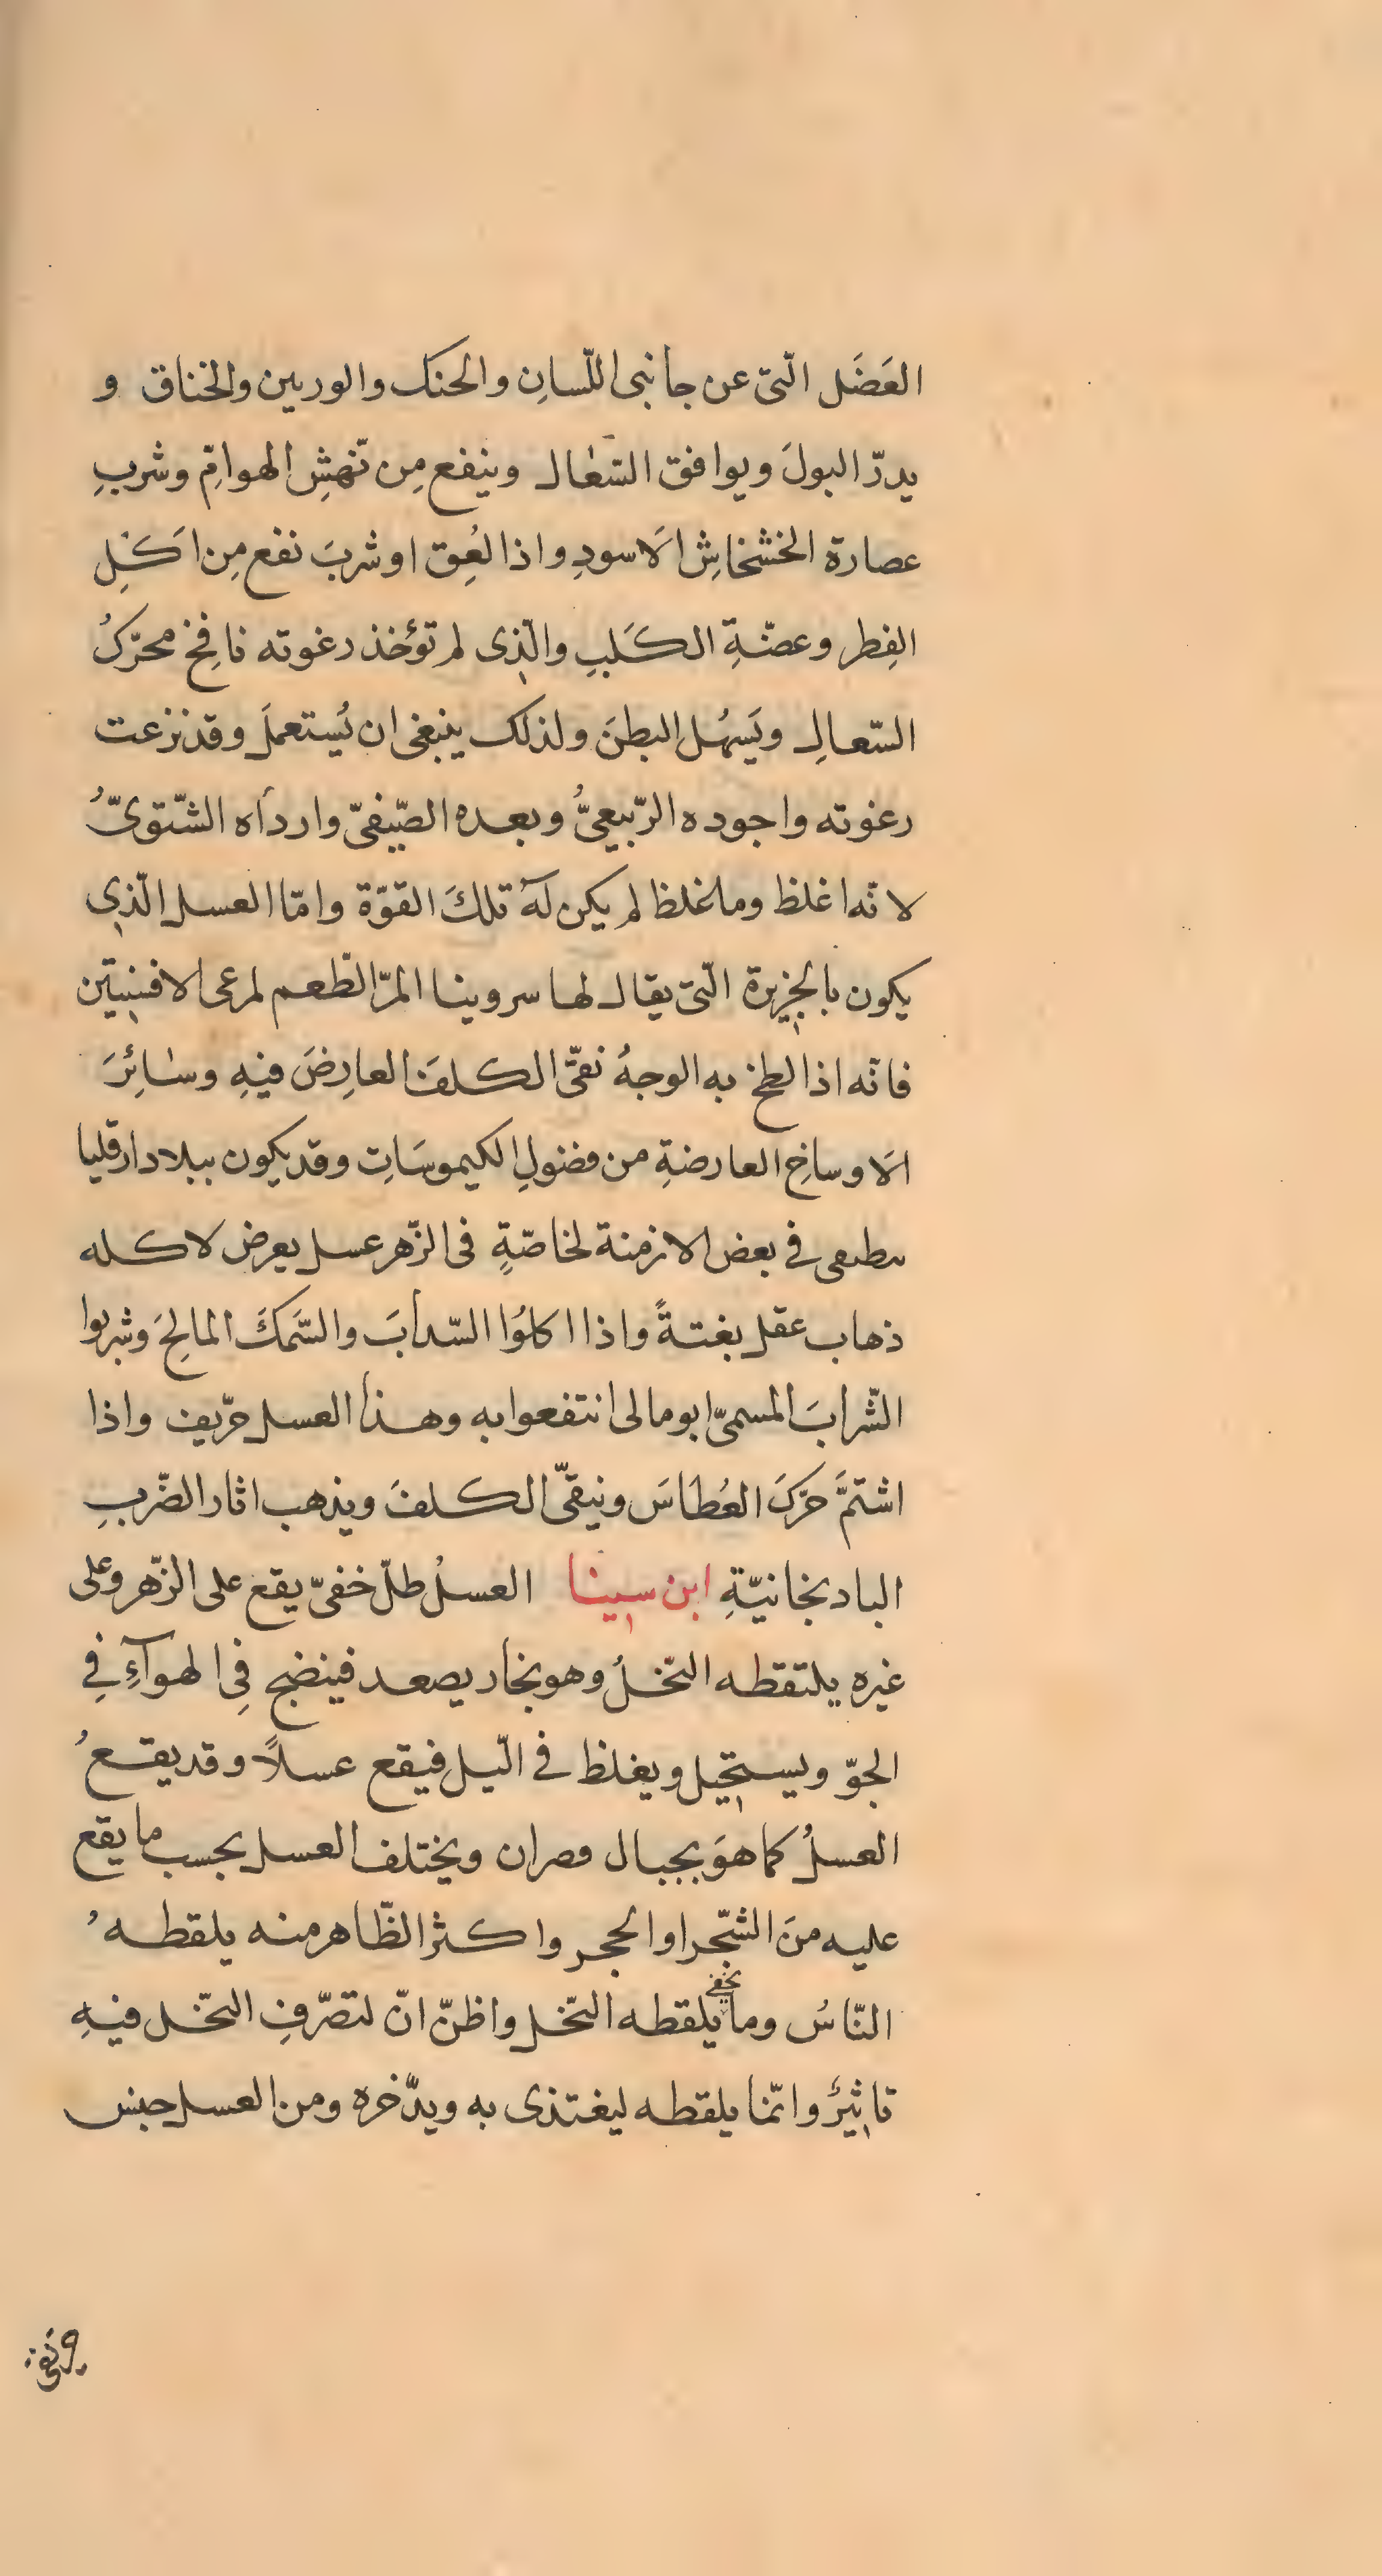 العَضَل الّتى عن جانبى اللّسانِ والحنك والوربين والخناق و
يدرّ البولَ ويوافق السّعال وينفع مِن نّهشِ الهوامّ وشربِ
عصارة الخشخاشِ الاَسودِ واذا لُعِق اوشربَ نفع مِن اَكلِ
الفِطر وعضّةِ الكَلبِ والّذى لم تؤخذ رغوته نافِخ محرّكُ
السّعالِ ويَسهُل البطنَ ولذلك ينبغى ان يُستعملَ وقد نزعت
رغوته واجوده الرّبيعىُّ وبعده الصّيفىّ وارداَه الشّتوىّ
لانّه اغلظ وما غلظ لم يكن لهَ تلكَ القوّة وامّا العسل الّذى
يكون بالجزيرة الّتى يقال لها سروينا المرّ الطّعم لمرعى الافسنتين
فانّه اذا لطخ به الوجهُ نقّى الكلفَ العارِضَ فيهِ وسائِرَ
الاَوساخِ العارضةِ من فضولِ الكيموسَاتِ وقد يكون ببلاد ارقليا
فى بعض الازمنة لخاصّةٍ فى الزّهر عسل يعرض لاكله
ذهاب عقل بغتةً واذا اكلوُا السّدابَ والسَّمكَ المالِحَ وشربوا
الشّرابَ المسمىّ ابومالى انتفعوا به وهذا العسل حرّيف واذا
اشتمَّ حرّكَ العُطاسَ وينقّى الكلفَ ويذهب اثار الضّربِ
البادنجانيّةِ ابن سينا العسلُ طلّ خفىّ يقع على الزّهر وعلى
غيره يلتقطه النّحلُ وهو بخار يصعد فينضج فِى الهوآءِ فِى
الجوّ ويستحيل ويغلظ فى الّيل فيقع عسلاً وقد يقعُ
العسلُ كما هوَ بجبال وصران ويختلف العسل بحسب ما يقع
عليه منَ الشّجر او الحجر واكثر الظّاهر منه يلقطهُ
النّاسُ وما يخفى يلقطه النّحل واظنّ انّ لتصّرفِ النّحل فيهِ
تاثيرٌ وانّما يلقطه ليغتذى به ويدّخره ومن العسل جنس